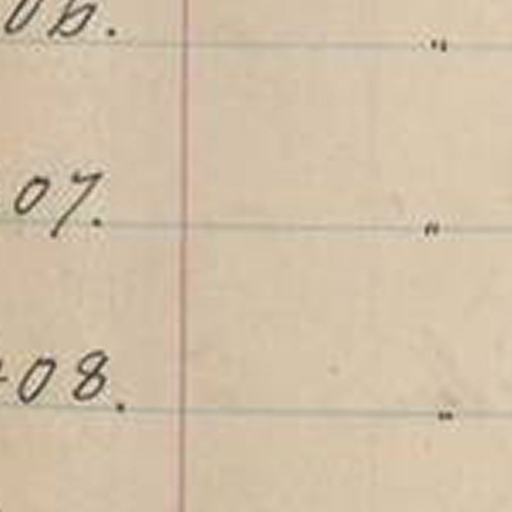 06. "
07. "
08. "